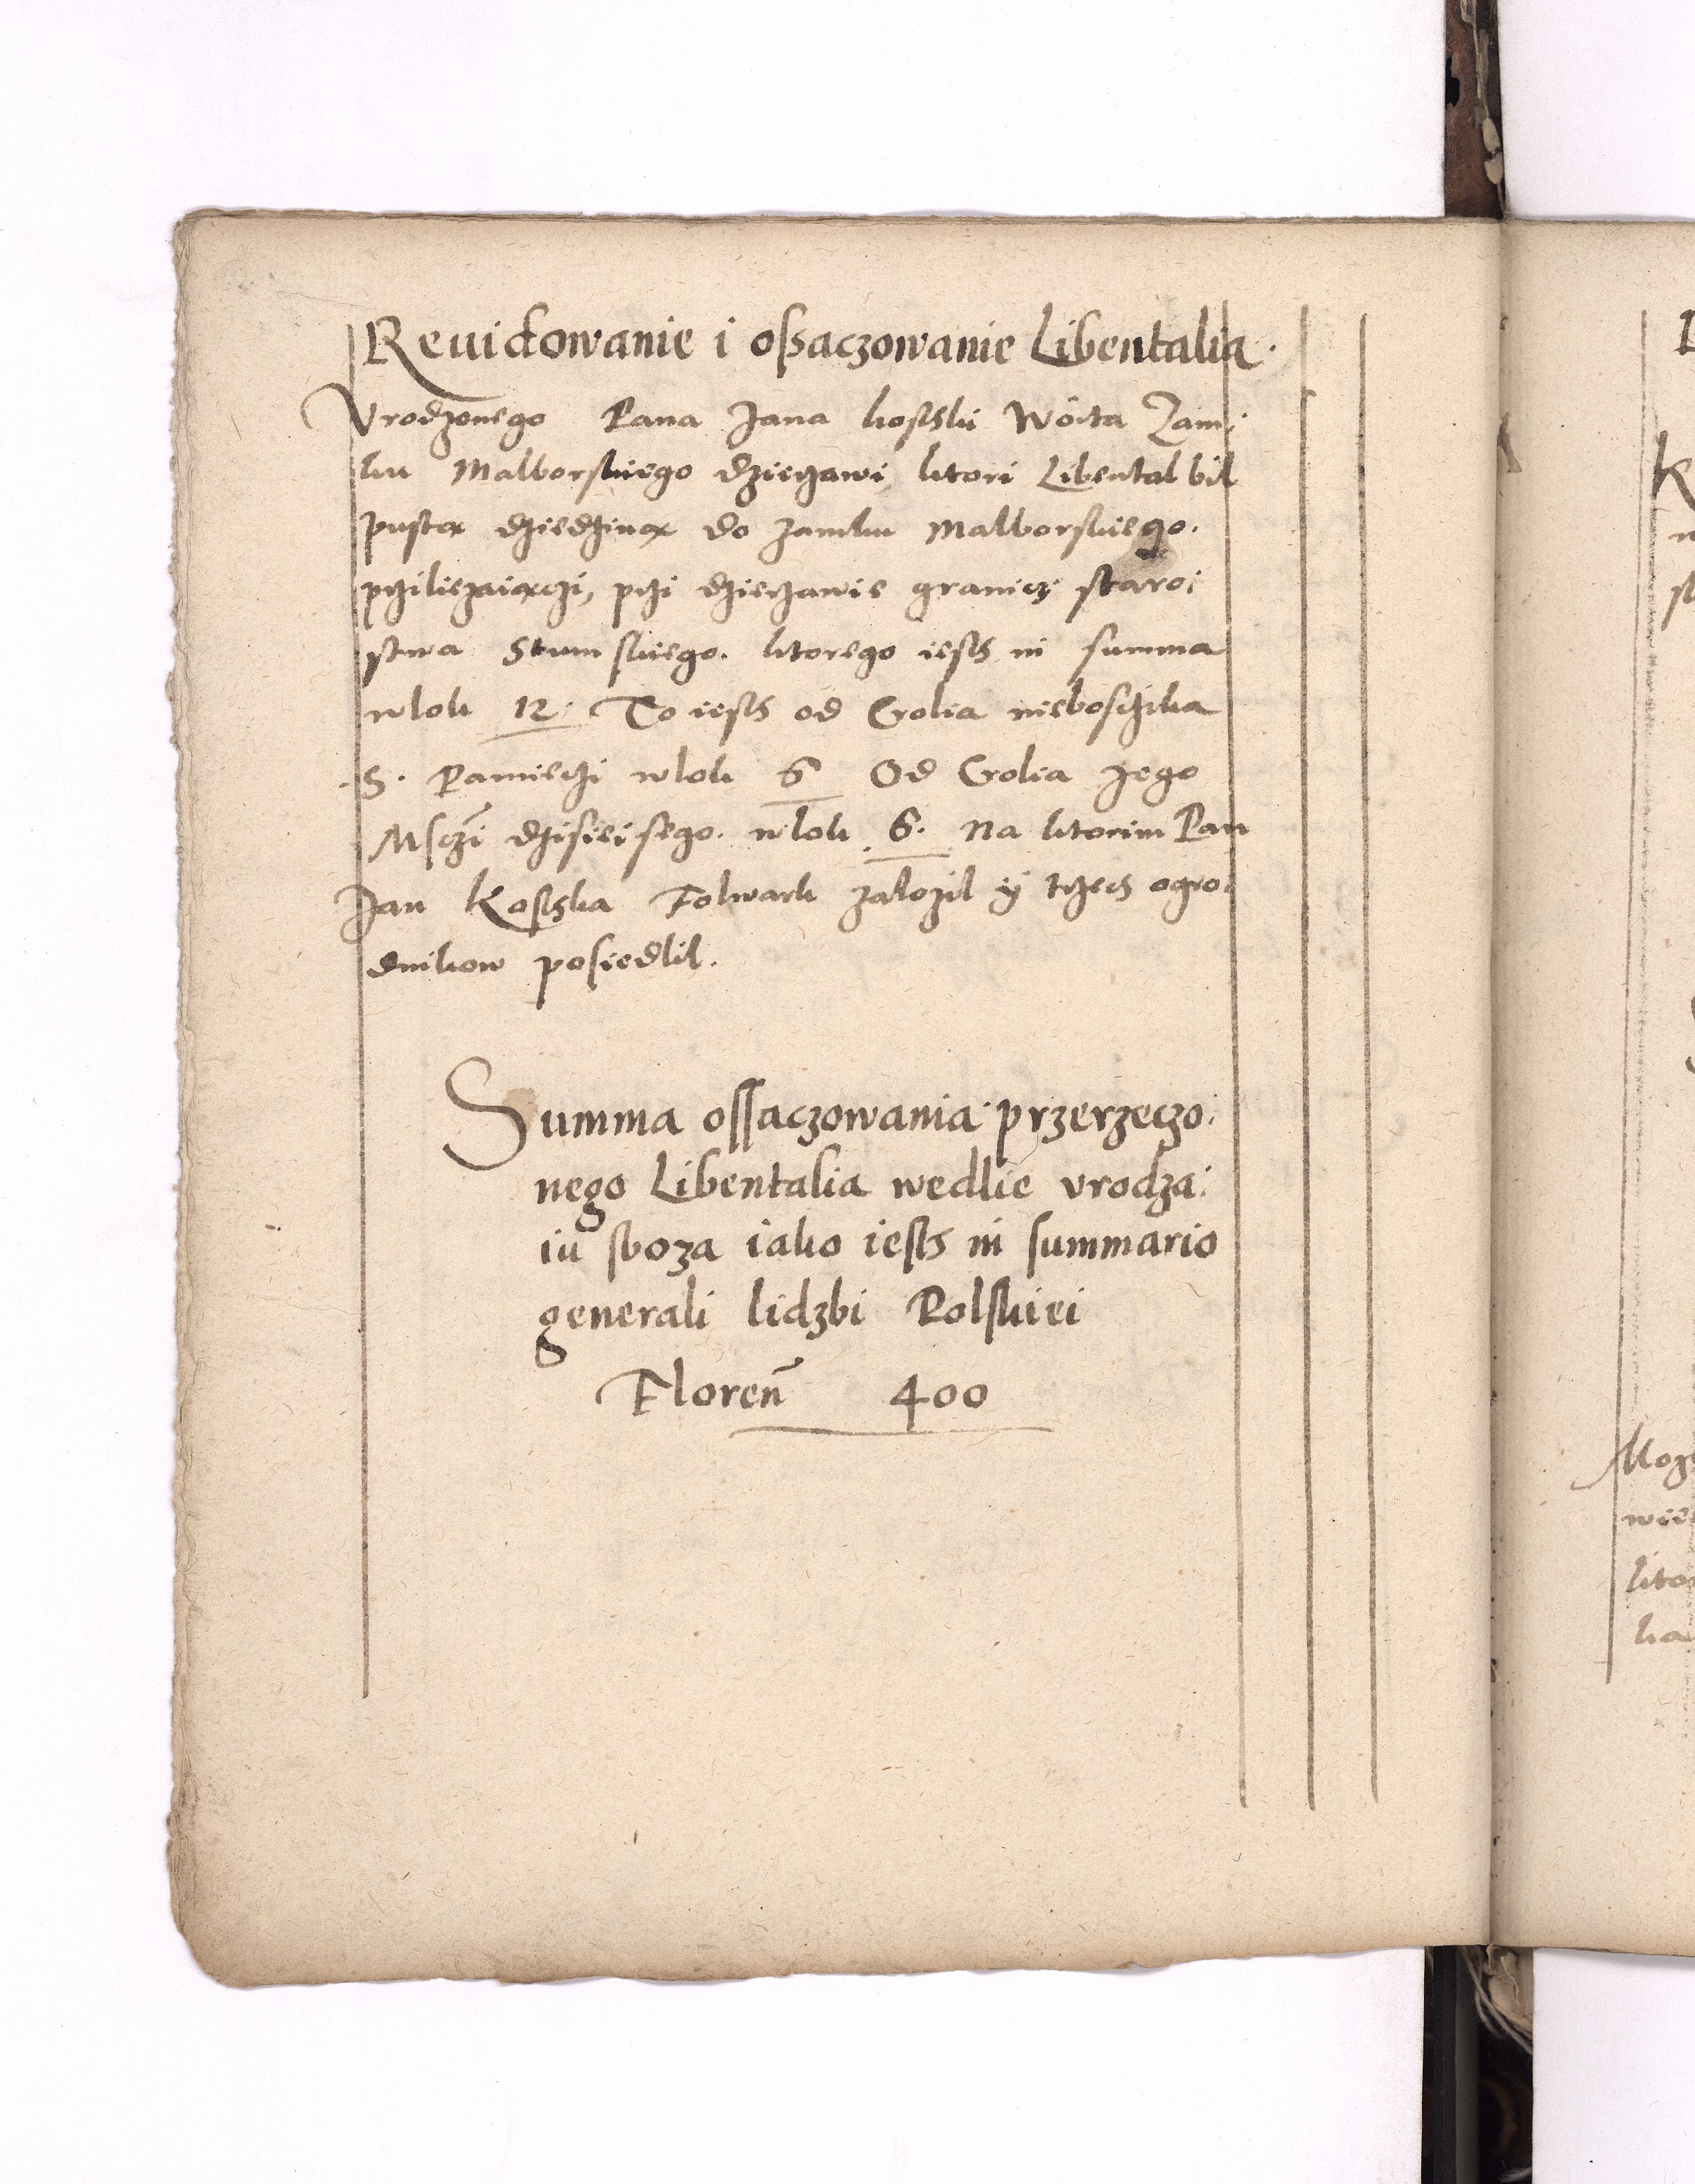 Reuidowanie i ossaczowanie Libentalia.
Vrodzonego Pana Jana kostki Woita Zam:
ku Malborskiego dzierzawi, ktori Libental bil
pusta dziedzina do zamku Malborskiego.
prziliezaiaczi, przi dzierzawie graniczi staro:
stwa Stumskiego. ktorego iesth in summa
wlok 12. To iesth od Crolia nieboschika
S. Pamieczi wlok 6 Od Crolia Jego
Msczi dzisieisego. wlok 6. Na ktorim Pan
Jan Kostka Folwark zalozil ÿ trzech ogro:
dnikow posiedlil.
Summa ossaczowania przerzeczo:
nego Libentalia wedlie vrodza:
iu sboza iako iesth in summario
generali lidzbi Polskiei
Floreñ 400